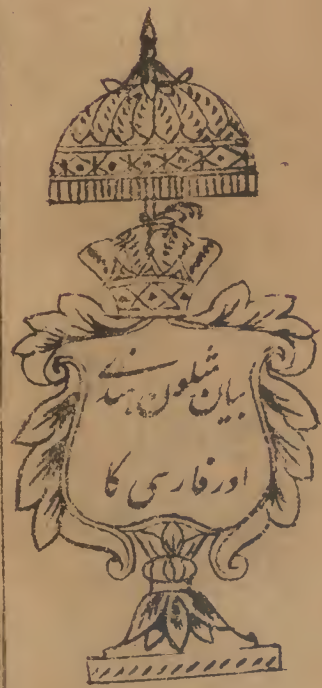 بیان مثلون ہندی
اور فارسی کا